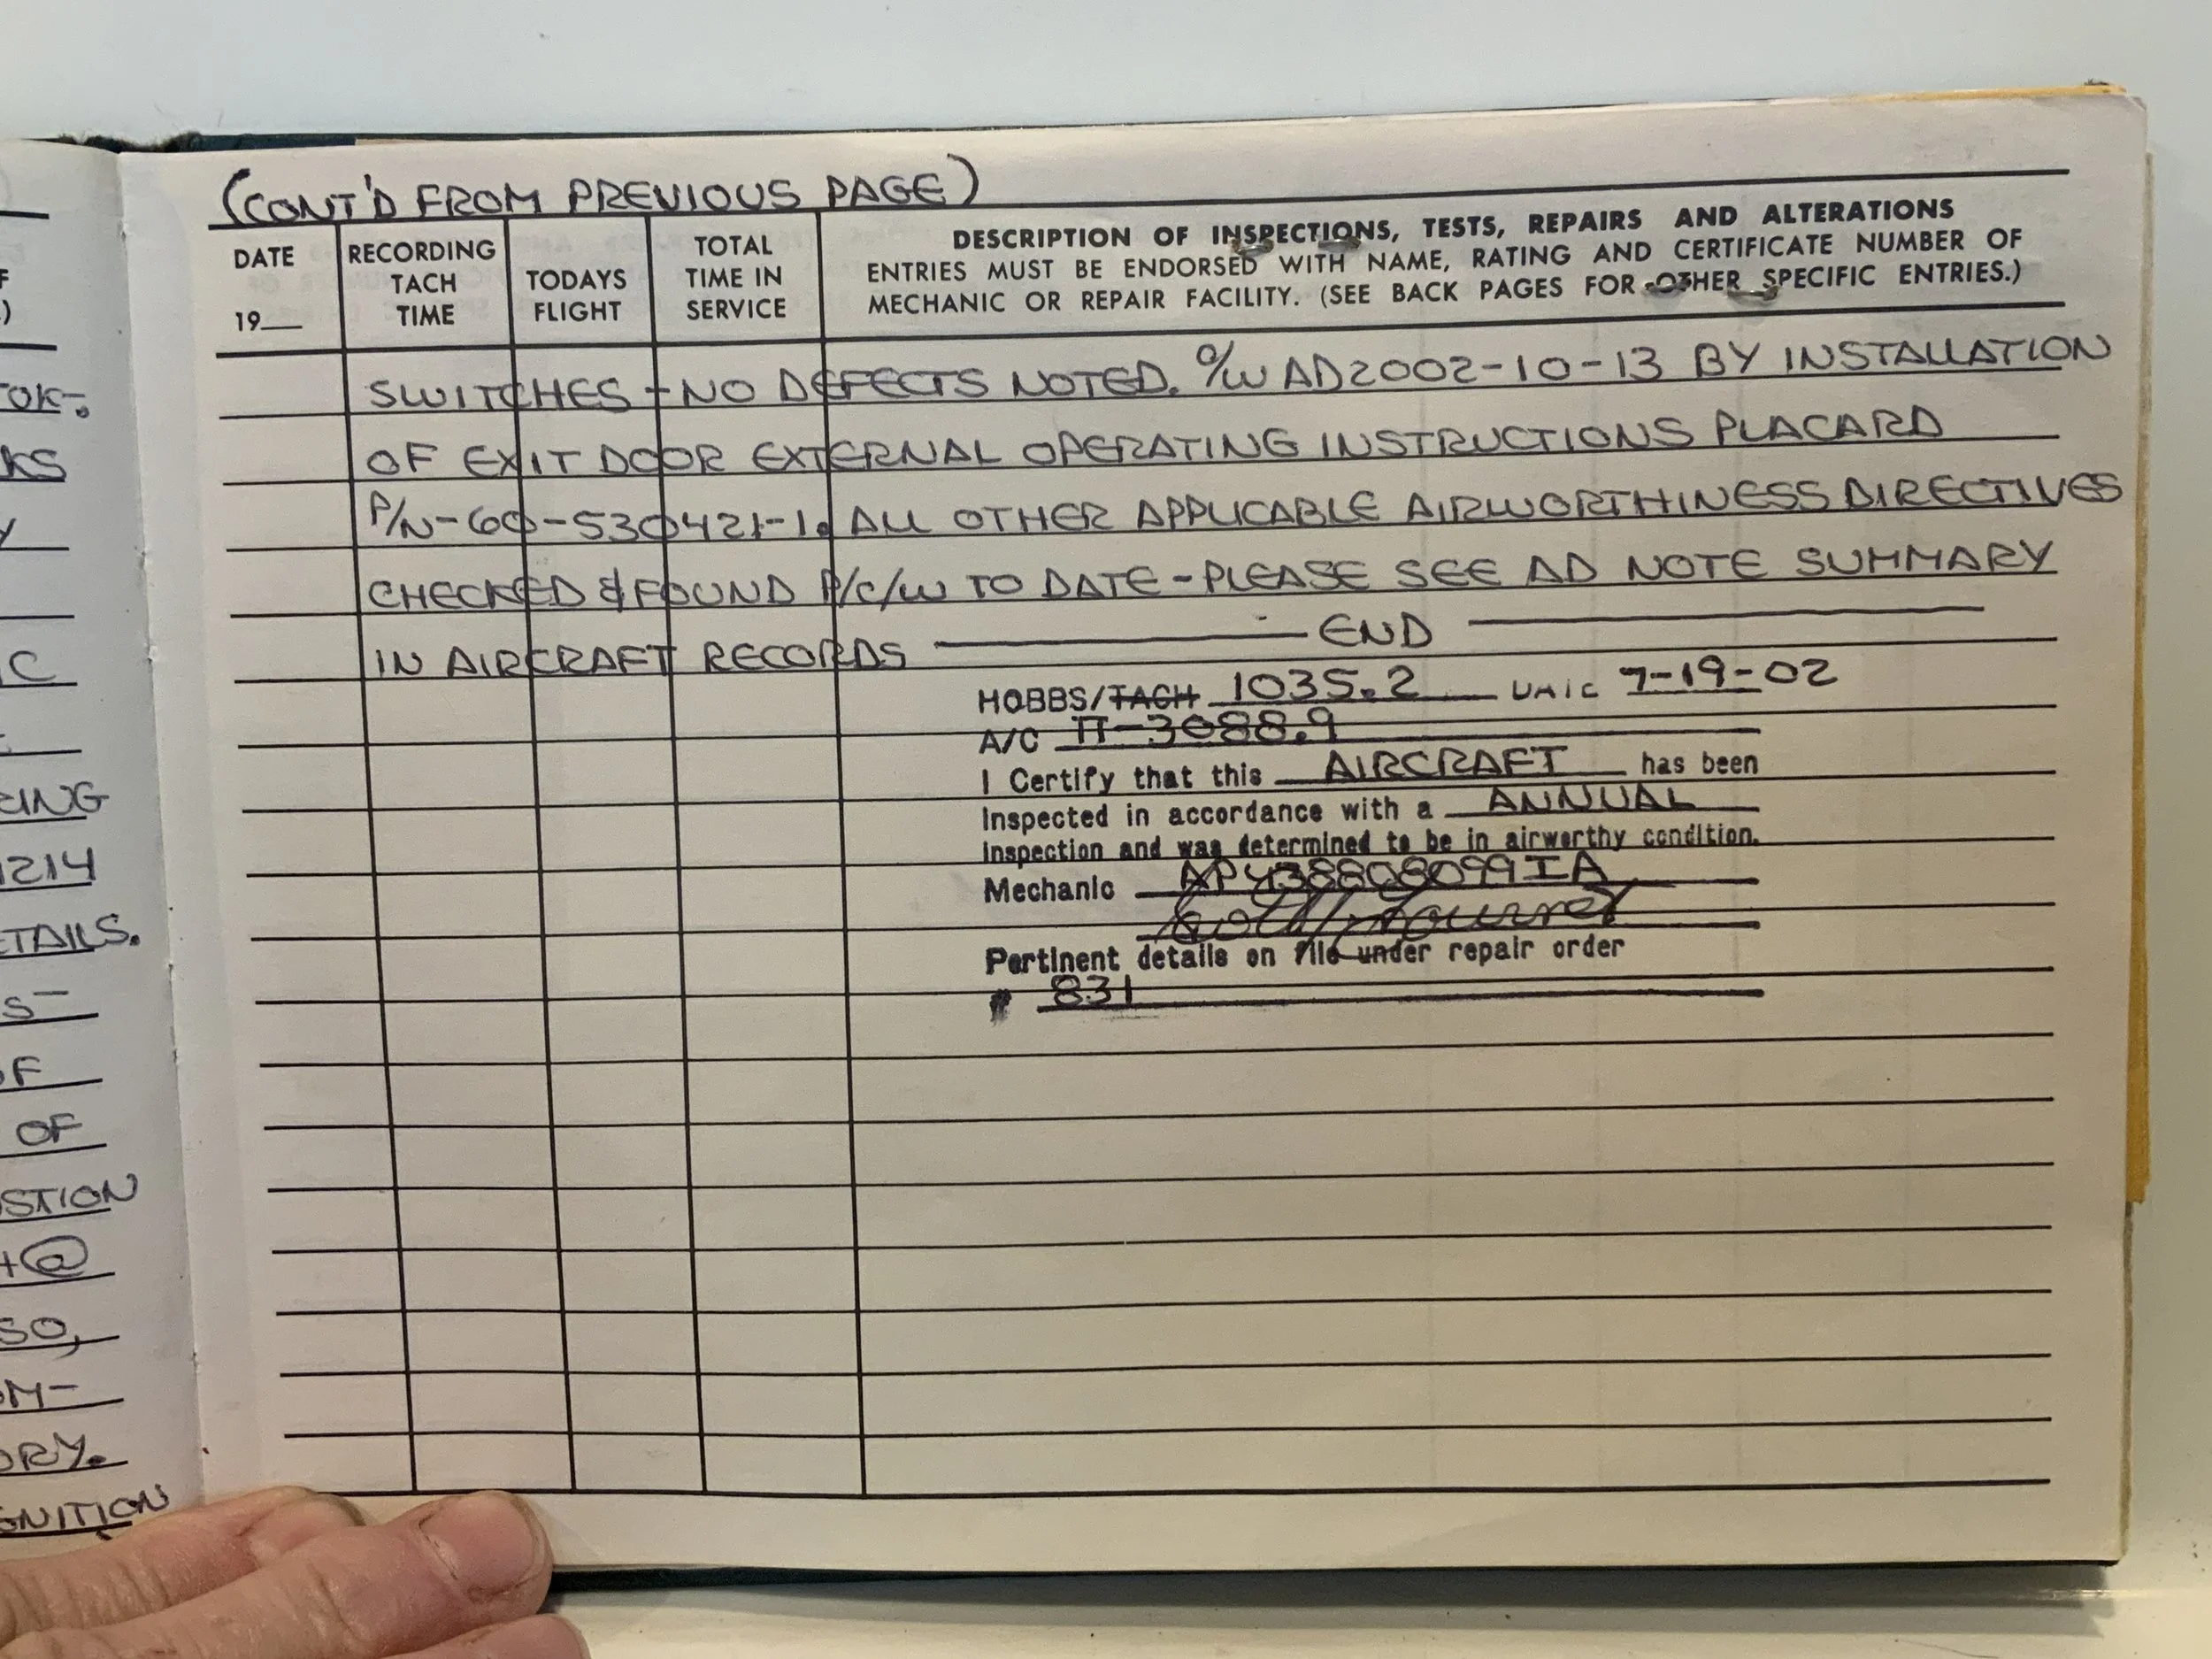 (CONT'D FROM PREVIOUS PAGE)
DATE
19__
RECORDING
TACH
TIME
TODAYS
FLIGHT
TOTAL
TIME IN
SERVICE
DESCRIPTION OF INSPECTIONS, TESTS, REPAIRS AND ALTERATIONS
ENTRIES MUST BE ENDORSED WITH NAME, RATING AND CERTIFICATE NUMBER OF
MECHANIC OR REPAIR FACILITY. (SEE BACK PAGES FOR OTHER SPECIFIC ENTRIES.)
SWITCHES - NO DEFECTS NOTED. C/W AD2002-10-13 BY INSTALLATION
OF EXIT DOOR EXTERNAL OPERATING INSTRUCTIONS PLACARD
P/N-60-530421-1. ALL OTHER APPLICABLE AIRWORTHINESS DIRECTIVES
CHECKED & FOUND P/C/W TO DATE - PLEASE SEE AD NOTE SUMMARY
IN AIRCRAFT RECORDS ——— END ———
HOBBS/TACH 1035.2 DATE 7-19-02
A/C TT-3088.9
I Certify that this AIRCRAFT has been
Inspected in accordance with a ANNUAL
Inspection and was determined to be in airworthy condition.
Mechanic AP438808099IA
Pertinent details on file under repair order
# 831
OK-.
KS
Y
C
1214
ETAILS.
S-
OF
OF
STION
+@
SO,
OM-
ORY.
GNITION